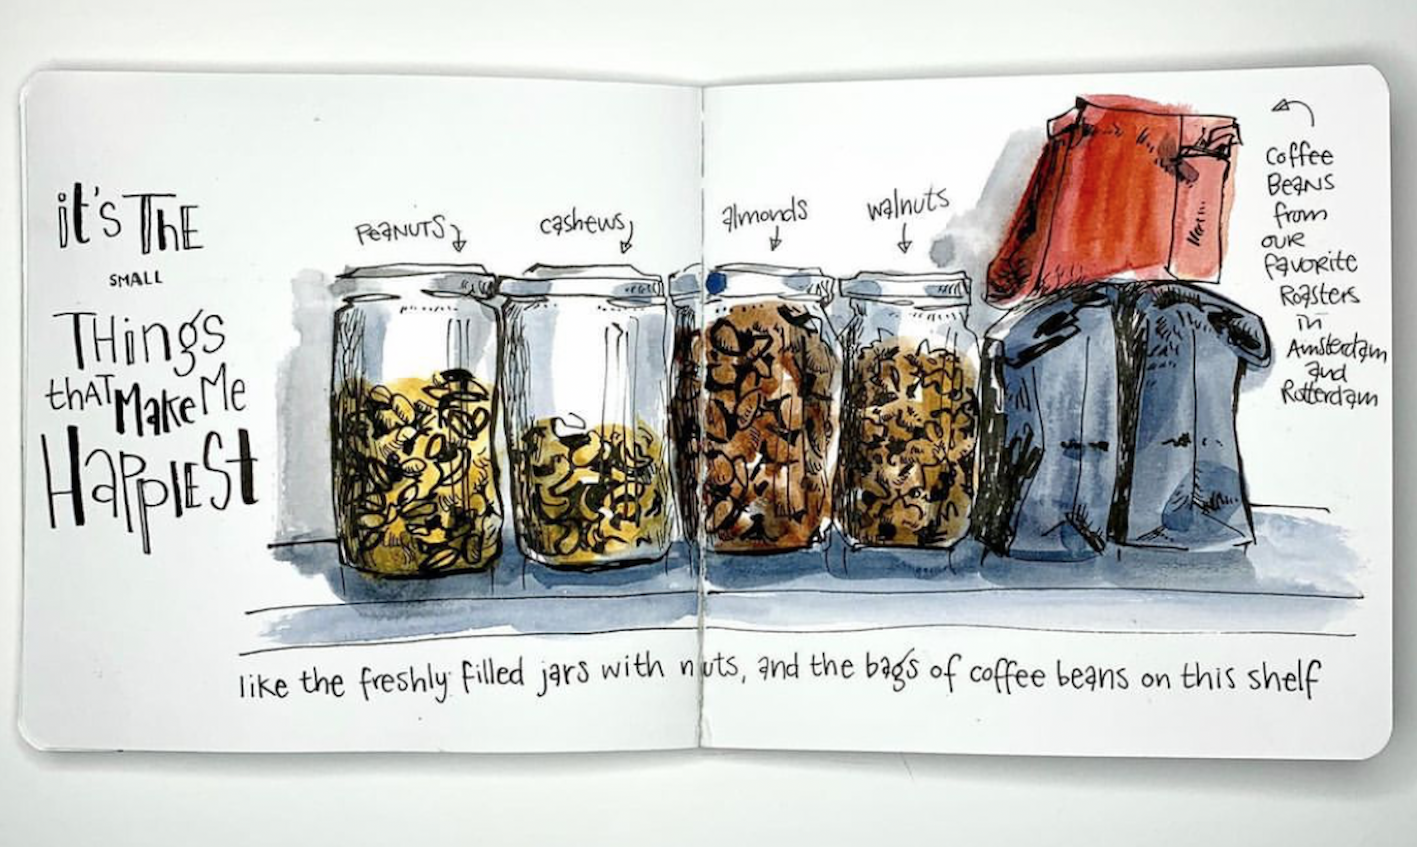 it's THE
SMALL
THings
thAT Make Me
HAPPIESt
PEANUTS
cashews
almonds
walnuts
Coffee
BEANS
from
OUR
favorite
Roasters
in
Amsterdam
and
Rotterdam
like the freshly filled jars with nuts, and the bags of coffee beans on this shelf